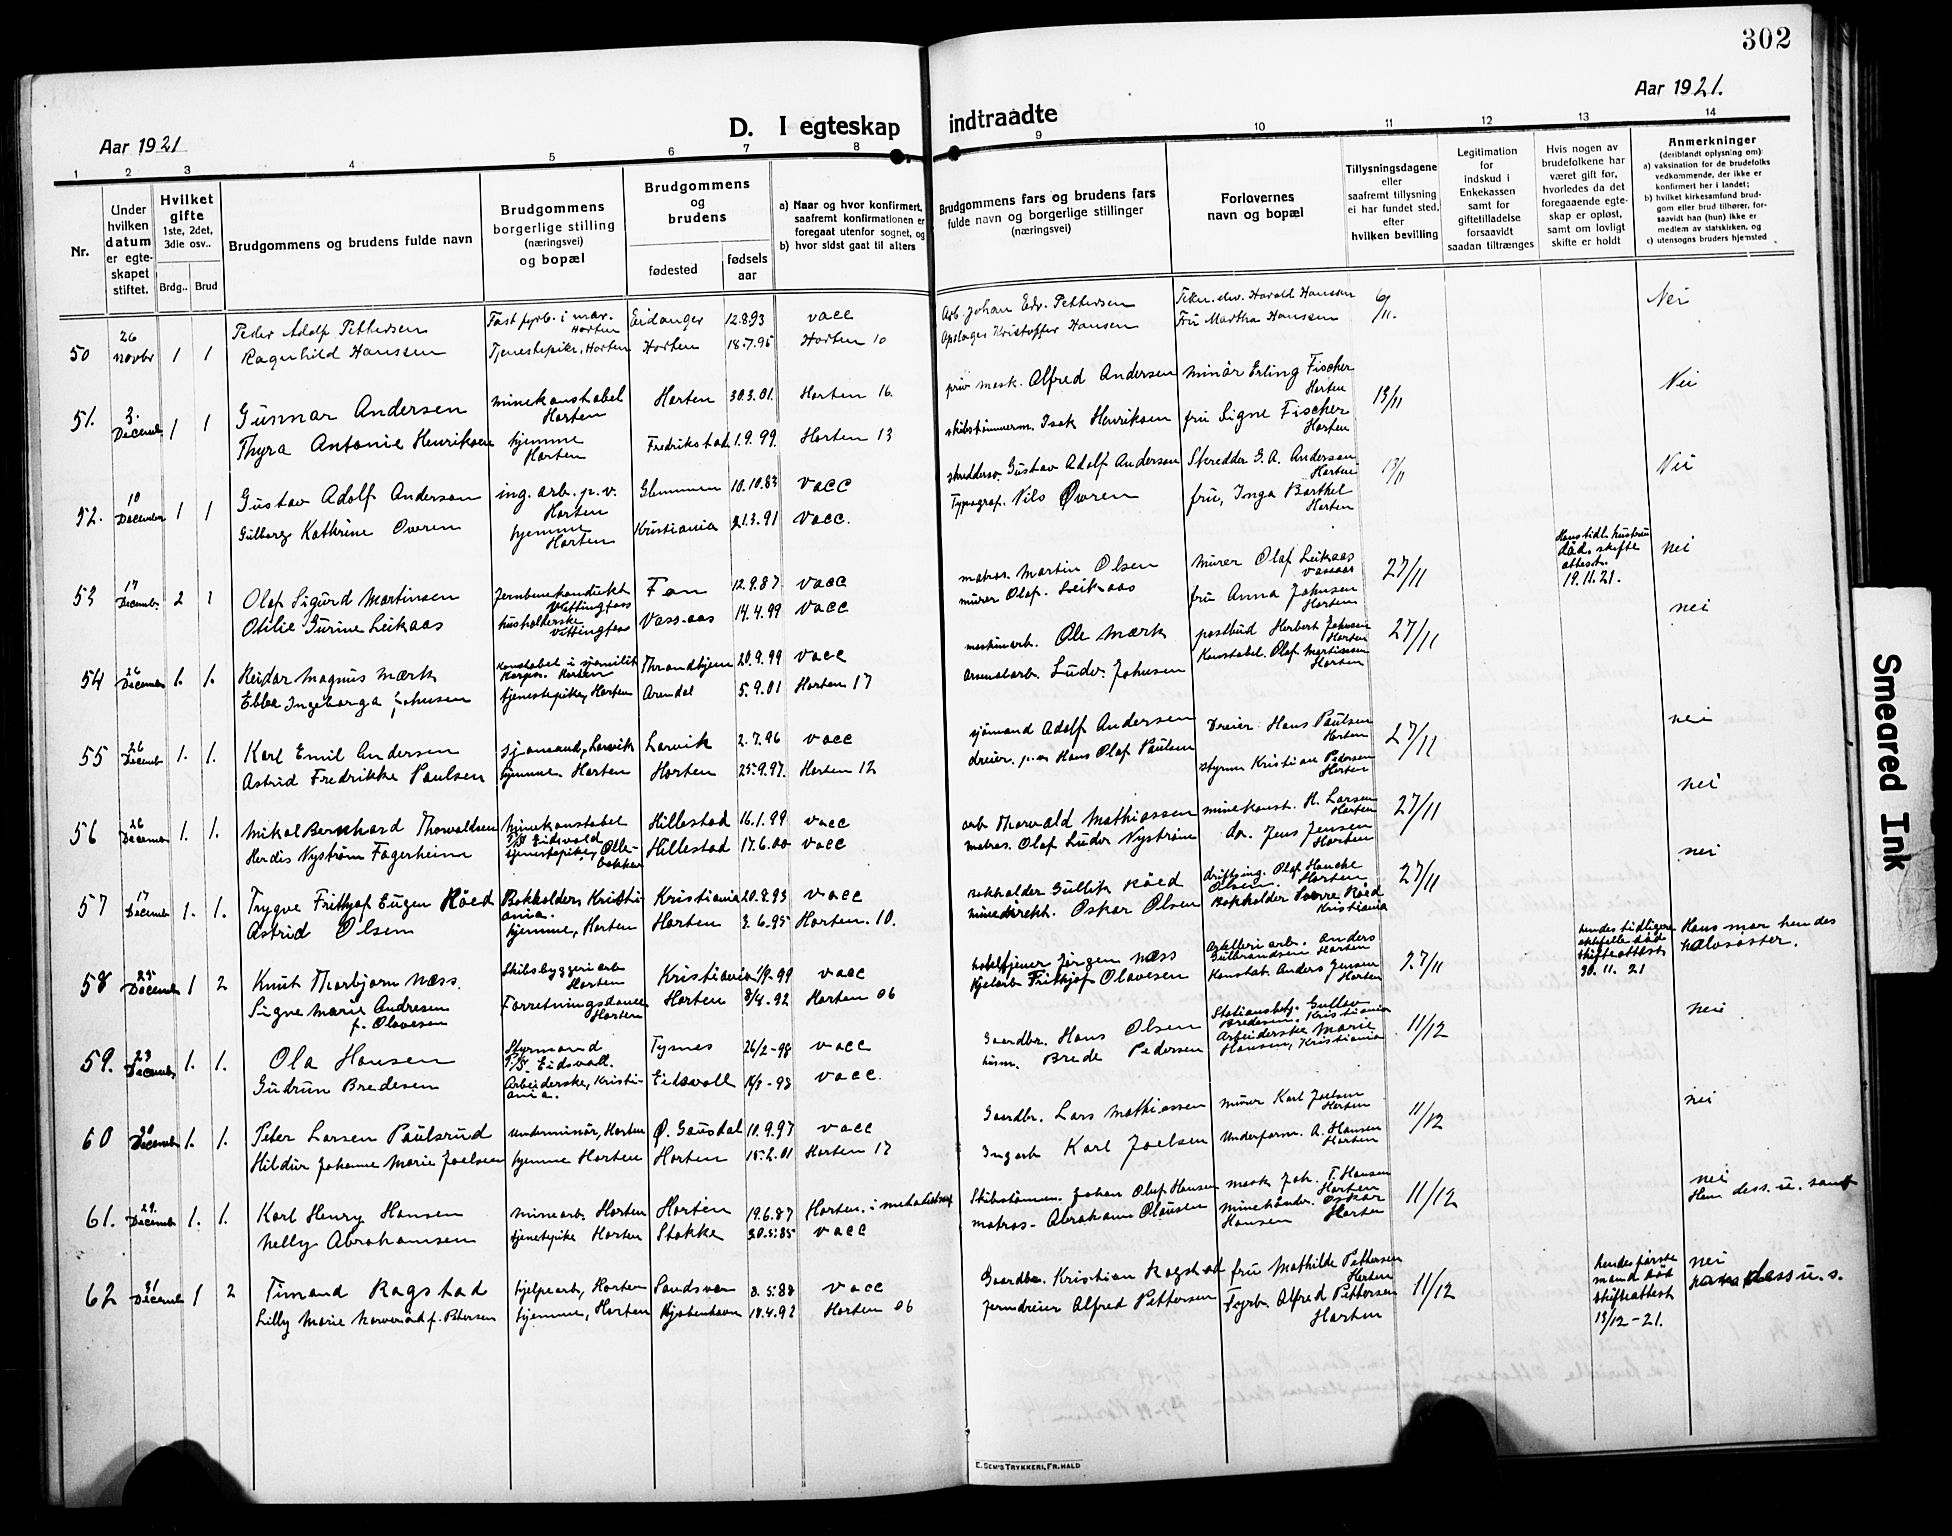 302
Aar 1921
D. I egteskap indtraadte
Aar 1921.
1 2 3 4 5 6 7 8 9 10 11 12 13 14
Nr.
Under hvilken datum er egteskapet stiftet.
Hvilket gifte 1ste, 2det, 3die osv..
Brdg.. Brud
Brudgommens og brudens fulde navn
Brudgommens borgerlige stilling (næringsvei) og bopæl
Brudgommens og brudens
fødested
fødsels aar
a) Naar og hvor konfirmert, saafremt konfirmationen er foregaat utenfor sognet, og
b) hvor sidst gaat til alters
Brudgommens fars og brudens fars fulde navn og borgerlige stillinger (næringsvei)
Forlovernes navn og bopæl
Tillysningsdagene eller saafremt tillysning ei har fundet sted, efter hvilken bevilling
Legitimation for indskud i Enkekassen samt for giftetilladelse forsaavidt saadan tiltrænges
Hvis nogen av brudefolkene har været gift før, hvorledes da det foregaaende egteskap er opløst, samt om lovligt skifte er holdt
Anmerkninger (deriblandt oplysning om)
a) vaksination for de brudefolks vedkommende, der ikke er konfirmert her i landet;
b) hvilket kirkesamfund brudgom eller brud tilhører, forsaavidt han (hun) ikke er medlem av statskirken, og
c) utensogns bruders hjemsted
50 26 Novbr 1 1 Peder Adolf Pettersen Fast fyrb. i mar. Horten Eidanger 12.8.93 vacc Arb. Johan Edv. Pettersen Harald Hanssen 6/11. Nei
Ragnhild Hanssen Tjenestepike, Horten Horten 18.7.95 Horten 10 Kristoffer Hansen Fru Martha Hanssen
51. 3. Decemb 1 1 Gunnar Andersen Minekonstabel Horten Horten 30.3.01. Horten 16. priv mask. Alfred Andersen Minör Erling Fischer Horten 13/11 Nei
Thyra Antonie Henriksen hjemme Horten Fredrikstad 1.9.99. Horten 13 skibstømmerm. Isak Henriksen fru Signe Fischer Horten
52. 10 December 1 1 Gustav Adolf Anderson ing. arb. p. v. Horten Glemmen 10.10.83 vacc Gustav Adolf Anderson Skredder G. A. Anderson Horten 13/11 Nei
Gulborg Kathrine Øveren hjemme Horten Kristiania 21.3.91 vacc. Typograf. Nils Øveren fru, Inga Barthel Horten
53 17 Decemb. 2 1 Olaf Sigurd Martinsen Jernbanekonduktr. Vittingfoss 12.9.87 vacc matros. Martin Olsen Murer Olaf Leikaas Vassaas 27/11 Hans tidl. hustru död. skifte attest. 19.11.21. nei
Otilie Gurine Leikaas husholderske Vittingfoss Vassaas 14.4.99 vacc murer Olaf. Leikaas fru Anna Johnsen Horten
54 26 December 1. 1. Reidar Magnus Mærk Konstabel i sjömilit. Korps. Horten Throndhjem 20.9.99 vacc maskinarb. Ole Mærk postbud Herbert Johnsen Horten 27/11 nei
Ebba Ingeborga Johnsen tjenestepike, Horten Arendal 5.9.01 Horten 17 Arsenalarb. Ludv. Johnsen Konstabel. Olaf Martinsen Horten
55 26 Decemb 1. 1. Karl Emil Andersen sjömand, Larvik Larvik 2.7.96 vacc sjömand Adolf Andersen Dreier Hans Paulsen Horten 27/11 nei
Astrid Fredrikke Paulsen hjemme Horten Horten 25.9.97. Horten 12 dreier. Hans Olaf Paulsen styrm Kristian Pedersen Horten
56 26 December 1. 1. Mikal Bernhard Thorvaldsen Minekonstabel P/S Eidsvold Hillestad 16.1.99 vacc arb Thorvald Mathiassen minekonst. H. Larsen Horten 27/11 nei
Herdis Nystrøm Fagerheim tjenestepike, Ollebakken Hillestad 17.6.00 vacc matros. Olaf Ludv Nystrøm do. Jens Jensen Horten
57 17 Decemb 1. 1. Trygve Frithjof Eugen Röed Bokholder, Kristiania. Kristiania 20.8.93 vacc bokholder Gullik Röed driftsing. Olaf Hauche Olsen. Horten 27/11 nei
Astrid Olsen hjemme, Horten Horten 3.6.95 Horten. 10. minedirekt. Oskar Olsen Bokholder Sverre Röed Kristiania
58 25 Decemb 1 2 Knut Thorbjørn Næss. Skibsbyggeriarb Horten Kristiania 99 vacc Jørgen Næss Artilleriarb. Anders Gulbrandsen Horten 27/11 hendes tidligere ektefelle död skifteattest 30.11.21 Hans mor hendes halvsøster.
Signe Marie Andresen f. Olavesen Forretningsdame Horten Horten 8/4-92 Horten 06 Kjelarb Frithjof Olavesen Konstab. Anders Jensen Horten
59. 23 Decemb 1. 1. Ola Hansen Styrmand P/S. Eidsvoll. Tysnes 26/2-98 vacc Gaardbr. Hans Olsen Stationsbetj. Gustav Bredesen. Kristiania 11/12 nei
Gudrun Bredesen Arbeiderske, Kristiania. Eidsvoll vacc. husm. Brede Pedersen Arbeiderske Marie Hansen, Kristiania
60 30 Decemb 1. 1. Peter Larsen Paulsrud Underminör, Horten Ø. Gausdal 10.9.97 vacc Gaardbr. Lars Mathiassen Murer Karl Joelsen Horten 11/12 nei
Hildur Johanne Marie Joelsen hjemme Horten Horten 15.2.01 Horten 17 Ingarb Karl Joelsen Underform. A. Hansen Horten
61. 29. Decemb 1. 1. Karl Henry Hansen Minearb. Horten Horten 19.6.87 Horten. i metodistsamf Skibstömm. Johan Oluf Hansen mask Joh. T. Hansen Horten 11/12 nei Hun dess. u. samf
Nelly Abrahamsen tjenestepike Horten Stokke 30.5.85 vacc matros- Abraham Olausen Oskar Hansen Horten
62 31 Decemb 1 2 Timand Ragstad hjelpearb, Horten Sandsvær 3.5.88 vacc Gaardbr. Kristian Ragstad fru Mathilde Pettersen Horten 11/12 hendes første mand död skifteattest 13/12-21. nei dess u. s.
Lilly Marie f. Petersen hjemme, Horten Kjøbenhavn 18.4.92 Horten 06 jerndreier Alfred Pettersen Fyrb. Alfred Pettersen Horten
E. SEM'S TRYKKERI, FR.HALD
Smeared Ink